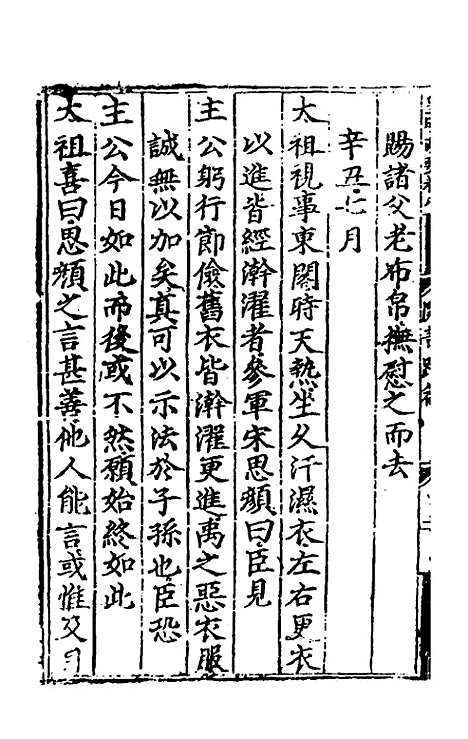 賜諸父老布帛撫慰之而去
辛丑七月
太祖視事東閣時天熱坐久汗濕衣左右更衣
以進皆經澣濯者參軍宋思顏曰臣見
主公躬行節儉舊衣皆澣濯更進禹之惡衣服
誠無以加矣真可以示法於子孫也臣恐
主公今日如此而後或不然願始終如此
太祖喜曰思顏之言甚善他人能言或惟及